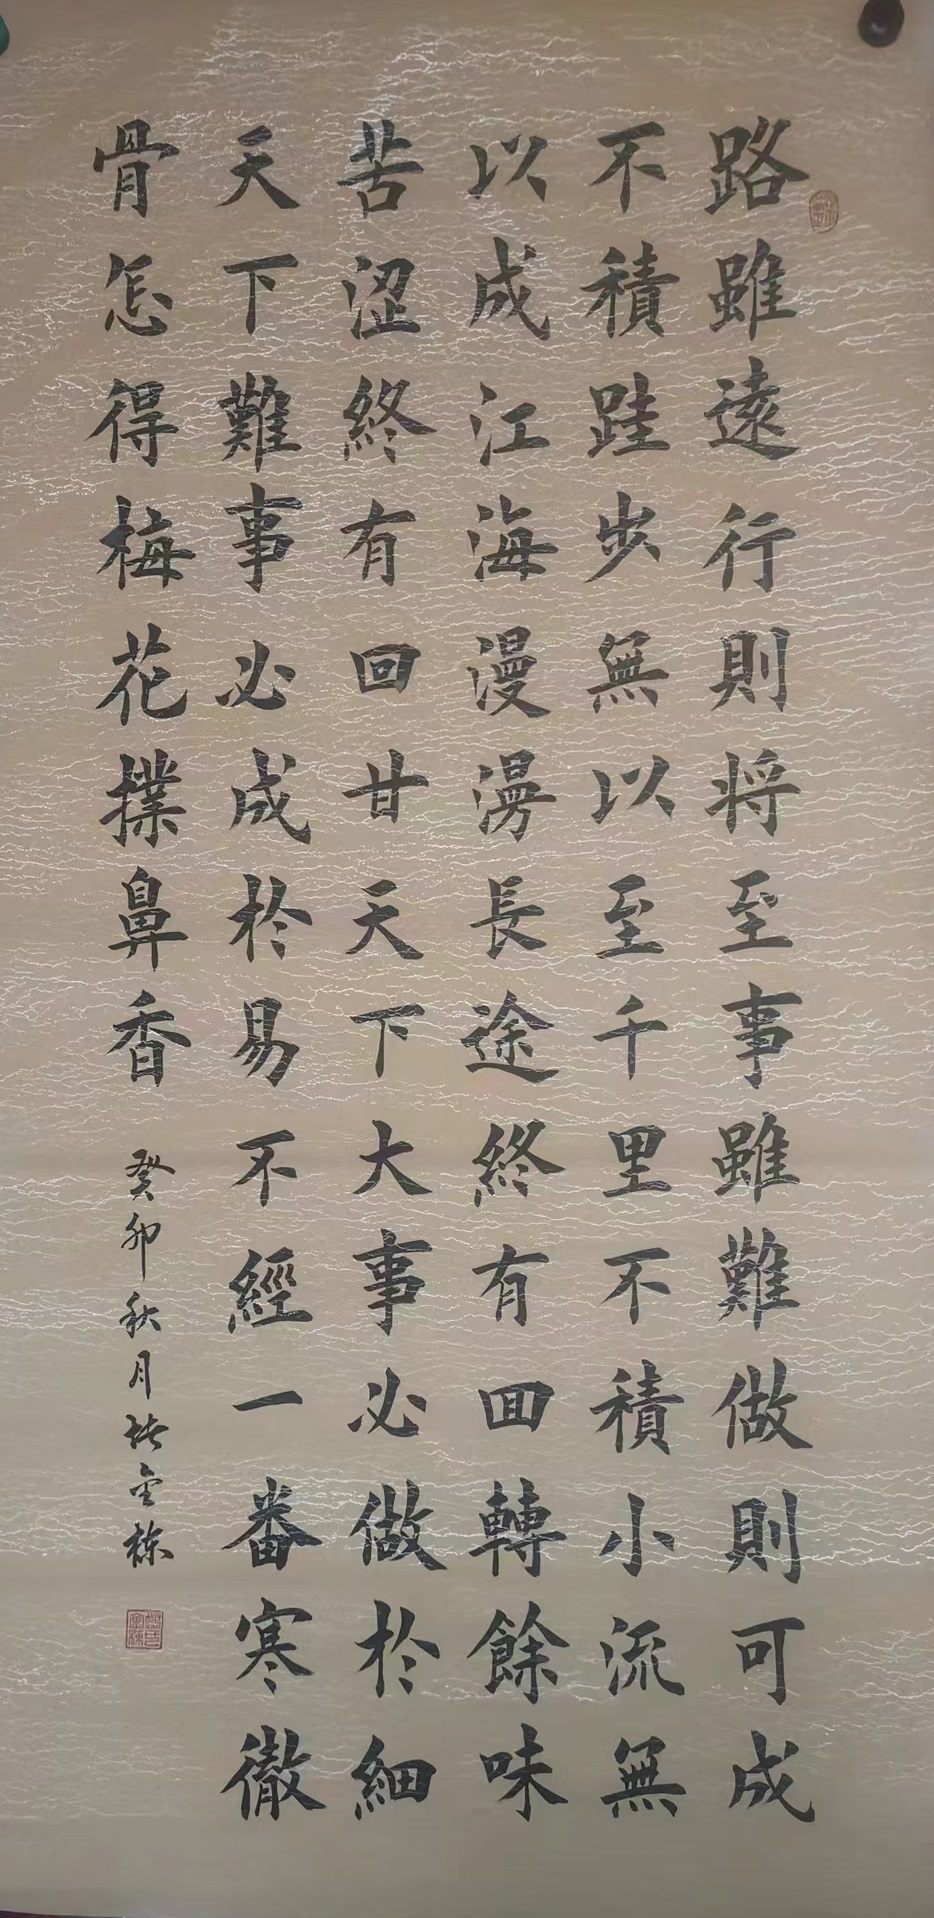 路雖遠行則将至事雖難做則可成
不積跬步無以至千里不積小流無
以成江海漫漫長途終有回轉餘味
苦涩終有回甘天下大事必做於細
天下難事必成於易不經一番寒徹
骨怎得梅花撲鼻香
癸卯秋月
金栋